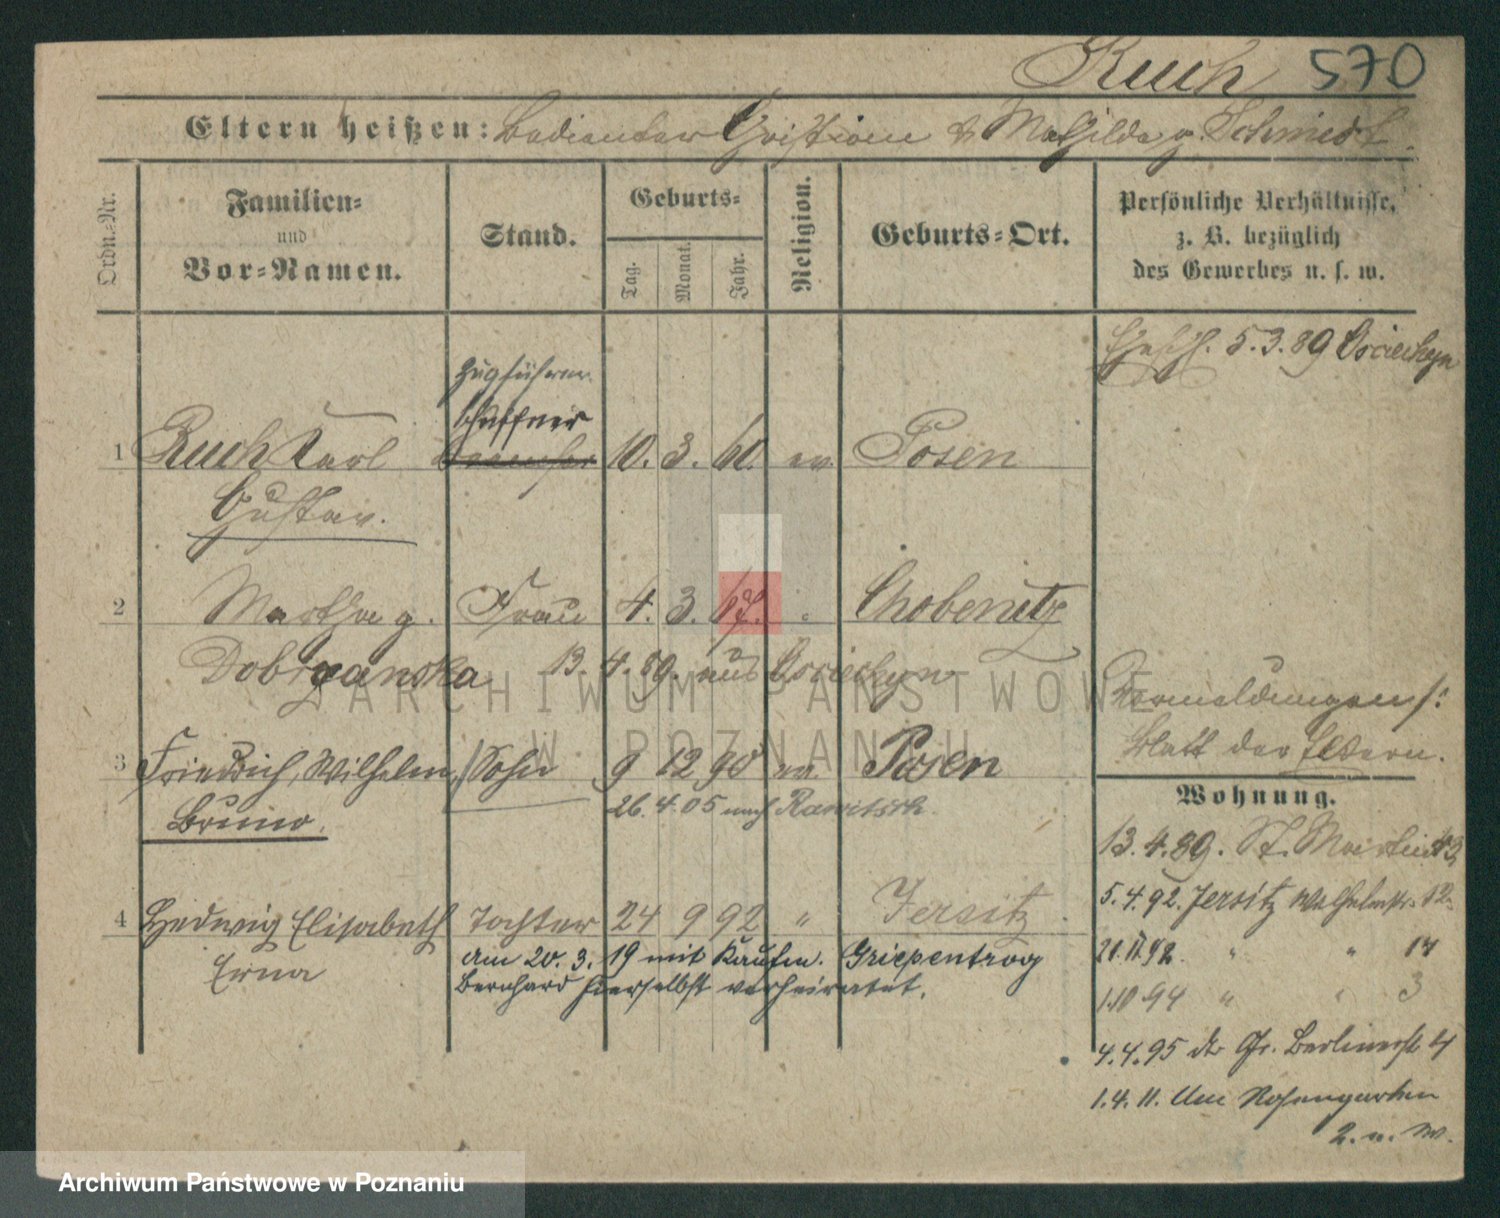 Ruch 570
Eltern heißen: Bedienter Christian & Mathilde g. Schmidt.
Ordn.-Nr.
Familien-
und
Vor-Namen.
Stand.
Geburts-
Tag.
Monat.
Jahr.
Religion.
Geburts-Ort.
Persönliche Verhältnisse,
z. B. bezüglich
des Gewerbes u. s. w.
5.3.89
Zugführer
Schaffner
1 Ruch Karl Bremser 10. 3. 60. ev. Posen
Gustav.
2 Martha g. Frau 4. 3. Chobenitz
13. 4. 89. aus
Blatt der Eltern.
3 Friedrich, Wilhelm, Sohn 9 12 90 ev. Posen
Bruno.
26. 4. 05 nach Rawitsch.
Wohnung.
13. 4. 89. St. Martin
5. 4. 92. Jersitz Wilhelmstr. 12.
4 Hedwig Elisabeth Tochter 24 9 92 " Jersitz
Erna
am 20. 3. 19 mit Kaufm. Griepentrog
Bernhard hierselbst verheiratet.
" " 14
1.10 94 " " 3
4. 4. 95 Gr. Berlinerstr 4
1. 4. 11. Am Rosengarten
2. n. W.
ARCHIWUM PAŃSTWOWE
W POZNANIU
Archiwum Państwowe w Poznaniu